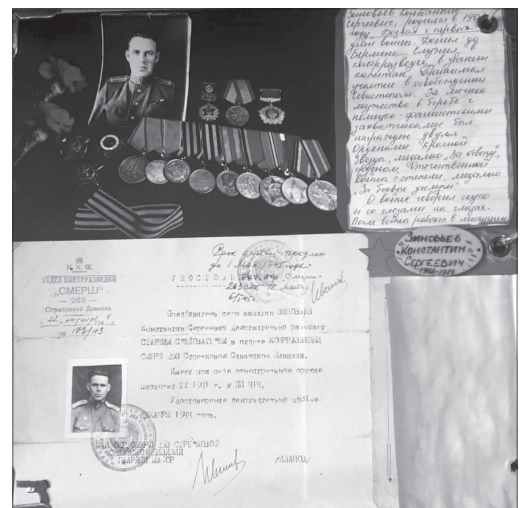 Зиновьев Константин
Сергеевич, родился в 190
году. Воевал с первых
дней войны. Дошел до
Берлина. Служил в
контрразведке, в звании
капитана. Принимал
участие в освобождении
Севастополя. За личное
мужество в борьбе с
немецко-фашистскими
захватчиками был
награжден двумя
Орденами Красной
Звезды, медалью "За отвагу",
орденом Отечественной
войны степени, медалью
"За боевые заслуги"
О войне говорил скупо
и со слезами на глазах.
После войны работал в милиции
ЗИНОВЬЕВ
КОНСТАНТИН
СЕРГЕЕВИЧ
Срок действия продлен
до 1 мая 1945 года
Н.К.О.
ОТДЕЛ КОНТРРАЗВЕДКИ
"СМЕРШ"
— 263 —
Стрелковой Дивизии
УДОСТО
Пред'явитель сего капитан ЗИНОВЬЕВ
Константин Сергеевич действительно работает
СТАРШИМ СЛЕДОВАТЕЛЕМ в отделе КОНТРРАЗВЕДКИ
СМЕРШ 263 Стрелковой Сивашской Дивизии.
Имеет при себе огнестрельное оружие
пистолет ТТ
Удостоверение действительно по 31-е
ДЕКАБРЯ 1944 года.
СМЕРШ 263 СТРЕЛКОВОЙ
ДИВИЗИИ
МАЙОР